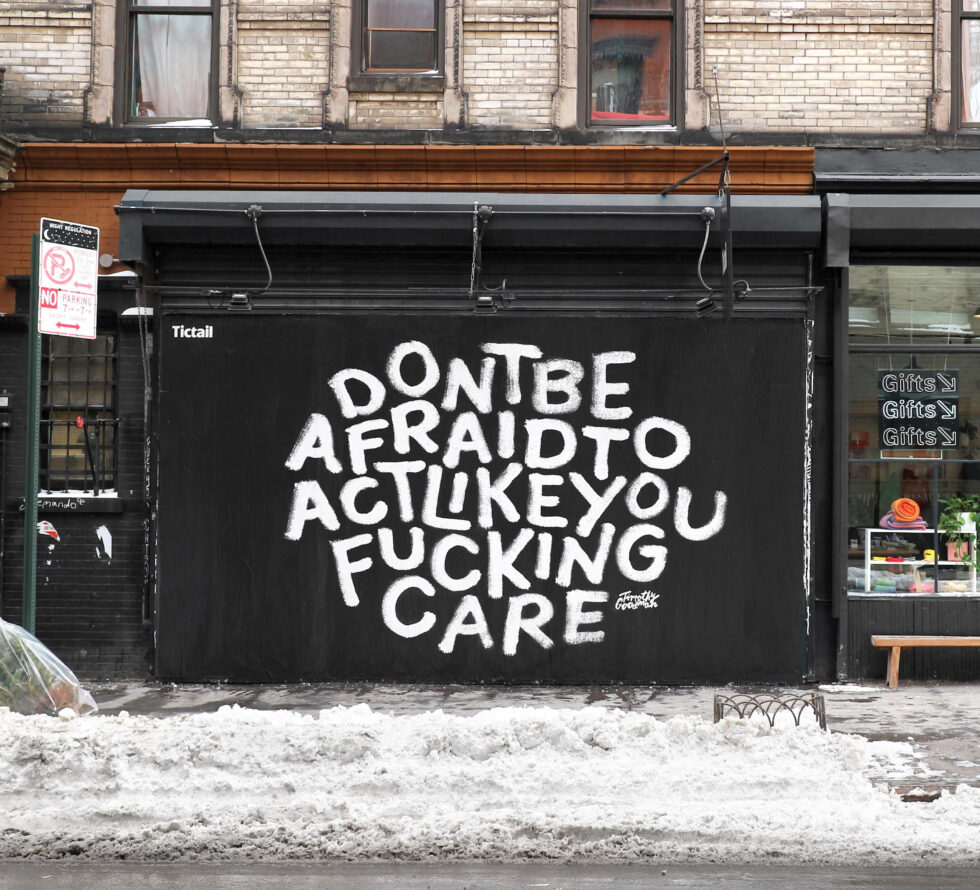 NIGHT REGULATION
NO PARKING
7PM-7PM
EXCEPT SUNDAY
Tictail
DONT BE
AFRAID TO
ACT LIKE YOU
FUCKING
CARE
Timothy
Goodman
Gifts
Gifts
Gifts